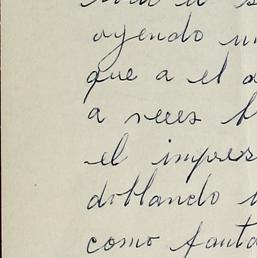 oyendo un
que a el a
a veces h
el impres
doblando u
como fanta